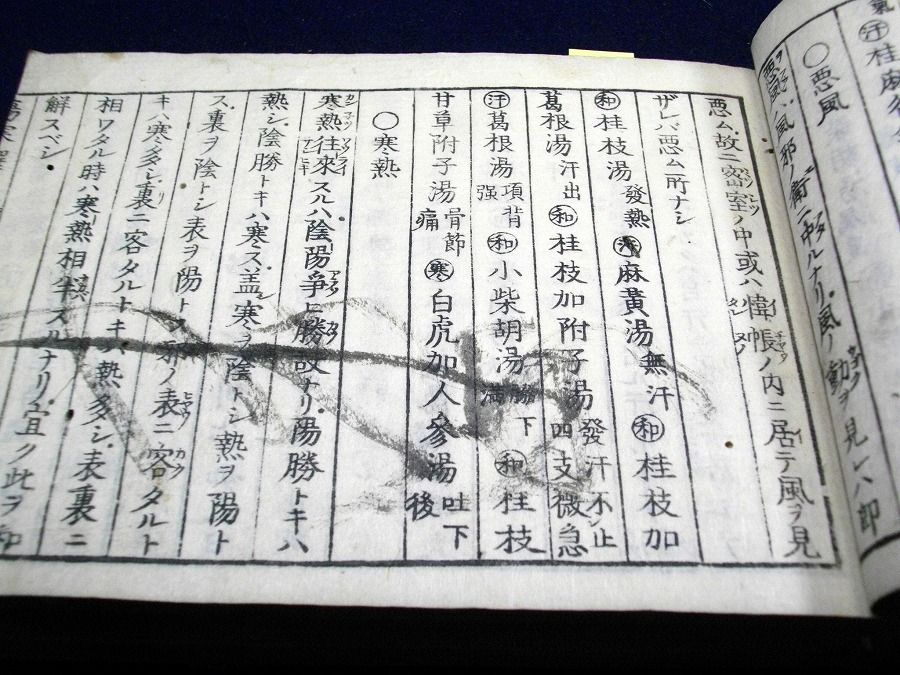 氣 汗 桂麻
○悪風
悪風ハ風邪ノ衛ニ中タルナリ風ノ動ヲ見レハ即
悪ム故ニ密室ノ中或ハ幃帳ノ内ニ居テ風ヲ見
ザレバ悪ム所ナシ
和 桂枝湯 發熱 麻黃湯 無汗 和 桂枝加
葛根湯 汗出 和 桂枝加附子湯 發汗不止四支微急
汗 葛根湯 項背强 和 小柴胡湯 脇下満 和 桂枝
甘草附子湯 骨節痛 寒 白虎加人參湯 吐下後
○寒熱
寒熱往來スルハ陰陽爭ヒ勝故ナリ陽勝トキハ
熱シ陰勝トキハ寒ス蓋寒ヲ陰トシ熱ヲ陽ト
ス裏ヲ陰トシ表ヲ陽トメ邪ノ表ニ客タルト
キハ寒多シ裏ニ客タルトキハ熱多シ表裏ニ
相ワタル時ハ寒熱相半スルナリ宜ク此ヲ和
解スベシ